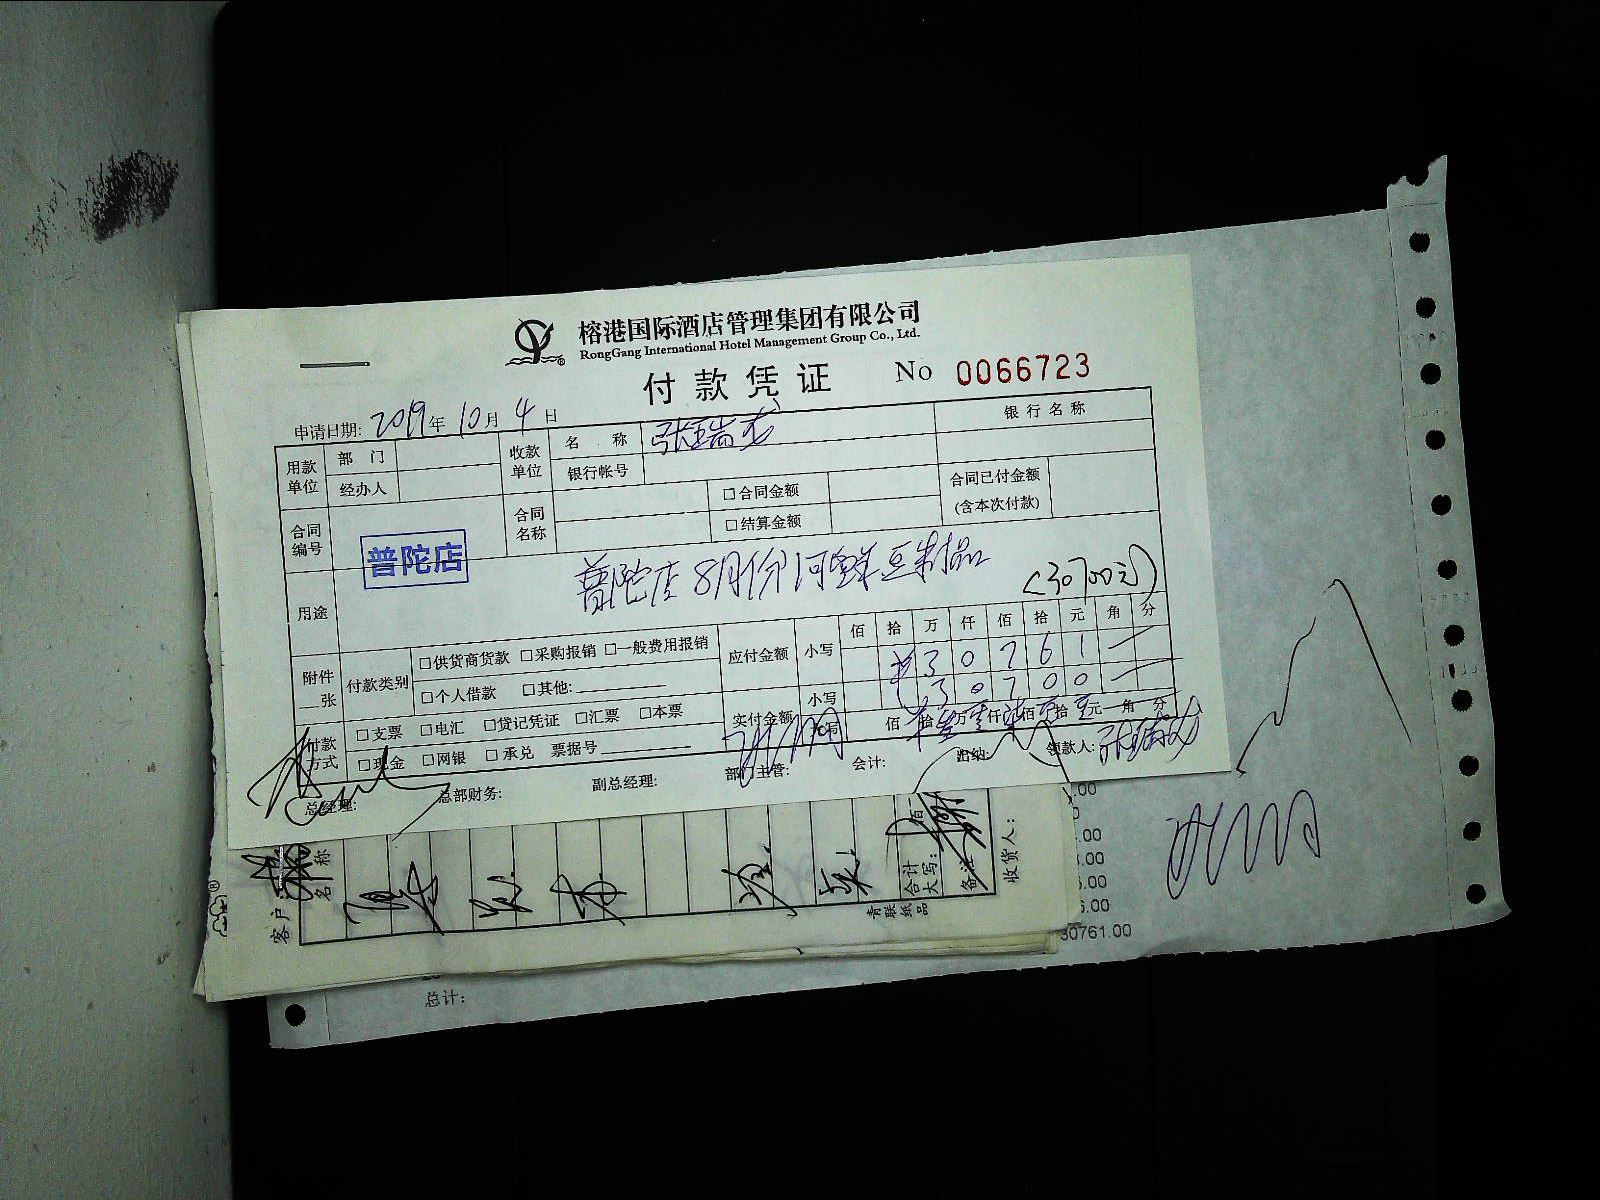 榕港国际酒店管理集团有限公司
RongGang International Hotel Management Group Co., Ltd.
付款凭证 No 0066723
申请日期: 2019年 10月 4日
用款单位 部门 收款单位 名称 张瑞 银行名称
经办人 银行帐号
合同编号 合同名称 □合同金额 合同已付金额(含本次付款)
□结算金额
普陀店
用途 普陀店8月份河鲜豆制品
(30700元)
附件 张 付款类别 □供货商货款 □采购报销 □一般费用报销 应付金额 小写 佰拾万仟佰拾元角分
¥30761—
□个人借款 □其他:
小写 30700—
付款方式 □支票 □电汇 □贷记凭证 □汇票 □本票 实付金额 大写 佰拾万仟佰拾元角分
□现金 □网银 □承兑 票据号
总经理: 总部财务: 副总经理: 部门主管: 会计: 出纳: 领款人: 张瑞
客户
名称
合计大写: 佰
备注
收货人:
青联纸品
.00
.00
.00
.00
.00
30761.00
总计: